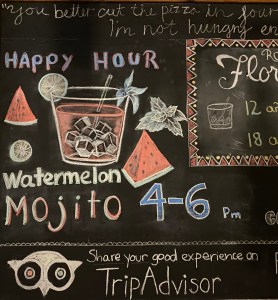 "You better cut the pizza in four
I'm not hungry
HAPPY HOUR
Watermelon
MOJITO 4-6 Pm
Flor
12
18
Share your good experience on
TripAdvisor